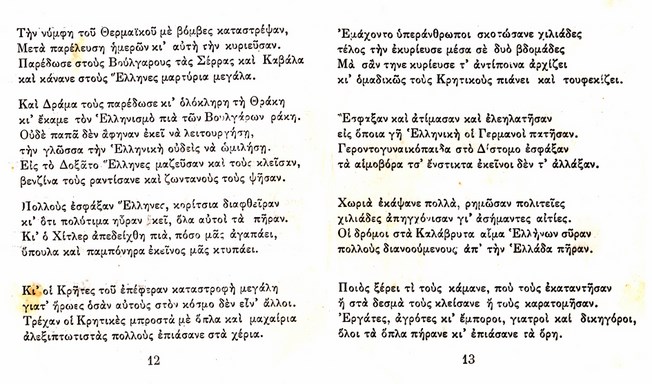 Τὴν νύμφη τοῦ Θερμαϊκοῦ μὲ βόμβες καταστρέψαν,
Μετὰ παρέλευση ἡμερῶν κι’ αὐτὴ τὴν κυριεῦσαν.
Παρέδωσε στοὺς Βούλγαρους τὰς Σέρρας καὶ Καβάλα
καὶ κάνανε στοὺς Ἕλληνας μαρτύρια μεγάλα.
Καὶ Δράμα τοὺς παρέδωσε κι’ ὁλόκληρη τὴ Θράκη
κι’ ἔκαμε τὸν Ἑλληνισμὸ πιὰ τῶν Βουλγάρων ράκη.
Οὐδὲ παπᾶ δὲν ἄφηναν ἐκεῖ νὰ λειτουργήσῃ,
τὴν γλῶσσα τὴν Ἑλληνικὴ οὐδεὶς νὰ ὡμιλήσῃ.
Εἰς τὸ Δοξᾶτο Ἕλληνες μαζεῦσαν καὶ τοὺς κλεῖσαν,
βενζίνα τοὺς ραντίσανε καὶ ζωντανοὺς τοὺς ψῆσαν.
Πολλοὺς ἐσφάξαν Ἕλληνες, κορίτσια διαφθεῖραν
κι’ ὅτι πολύτιμα ηὗραν ἐκεῖ, ὅλα αὐτοὶ τὰ πῆραν.
Κι’ ὁ Χίτλερ ἀπεδείχθη πιά, πόσο μᾶς ἀγαπάει,
ὕπουλα καὶ παμπόνηρα ἐκεῖνος μᾶς κτυπάει.
Κι’ οἱ Κρῆτες τοῦ ἐπέφεραν καταστροφὴ μεγάλη
γιατ’ ἥρωες ὁσὰν αὐτοὺς στὸν κόσμο δὲν εἶν’ ἄλλοι.
Τρέχαν οἱ Κρητικὲς μπροστὰ μὲ ὅπλα καὶ μαχαίρια
ἀλεξιπτωτιστὰς πολλοὺς ἐπιάσανε στὰ χέρια.
12
Ἐμάχοντο ὑπεράνθρωποι σκοτώσανε χιλιάδες
τέλος τὴν ἐκυρίευσε μέσα σὲ δυὸ βδομάδες
Μὰ σὰν τηνε κυρίευσε τ’ ἀντίποινα ἀρχίζει
κι’ ὁμαδικῶς τοὺς Κρητικοὺς πιάνει καὶ τουφεκίζει.
Ἔσφαξαν καὶ ἀτίμασαν καὶ ἐλεηλατῆσαν
εἰς ὅποια γῆ Ἑλληνικὴ οἱ Γερμανοὶ πατῆσαν.
Γεροντογυναικόπαιδα στὸ Δίστομο ἐσφάξαν
τὰ αἱμοβόρα τσ’ ἔνστικτα ἐκεῖνοι δὲν τσ’ ἀλλάξαν.
Χωριὰ ἐκάψανε πολλά, ρημῶσαν πολιτεῖες
χιλιάδες ἀπηγχόνισαν γι’ ἀσήμαντες αἰτίες.
Οἱ δρόμοι στὰ Καλάβρυτα αἷμα Ἑλλήνων σῦραν
πολλοὺς διανοούμενους ἀπ’ τὴν Ἑλλάδα πῆραν.
Ποιὸς ξέρει τὶ τοὺς κάμανε, ποὺ τοὺς ἐκαταντῆσαν
ἢ στὰ δεσμὰ τοὺς κλείσανε ἢ τοὺς καρατομῆσαν.
Ἐργάτες, ἀγρότες κι’ ἔμποροι, γιατροὶ καὶ δικηγόροι,
ὅλοι τὰ ὅπλα πήρανε κι’ ἐπιάσανε τὰ ὄρη.
13